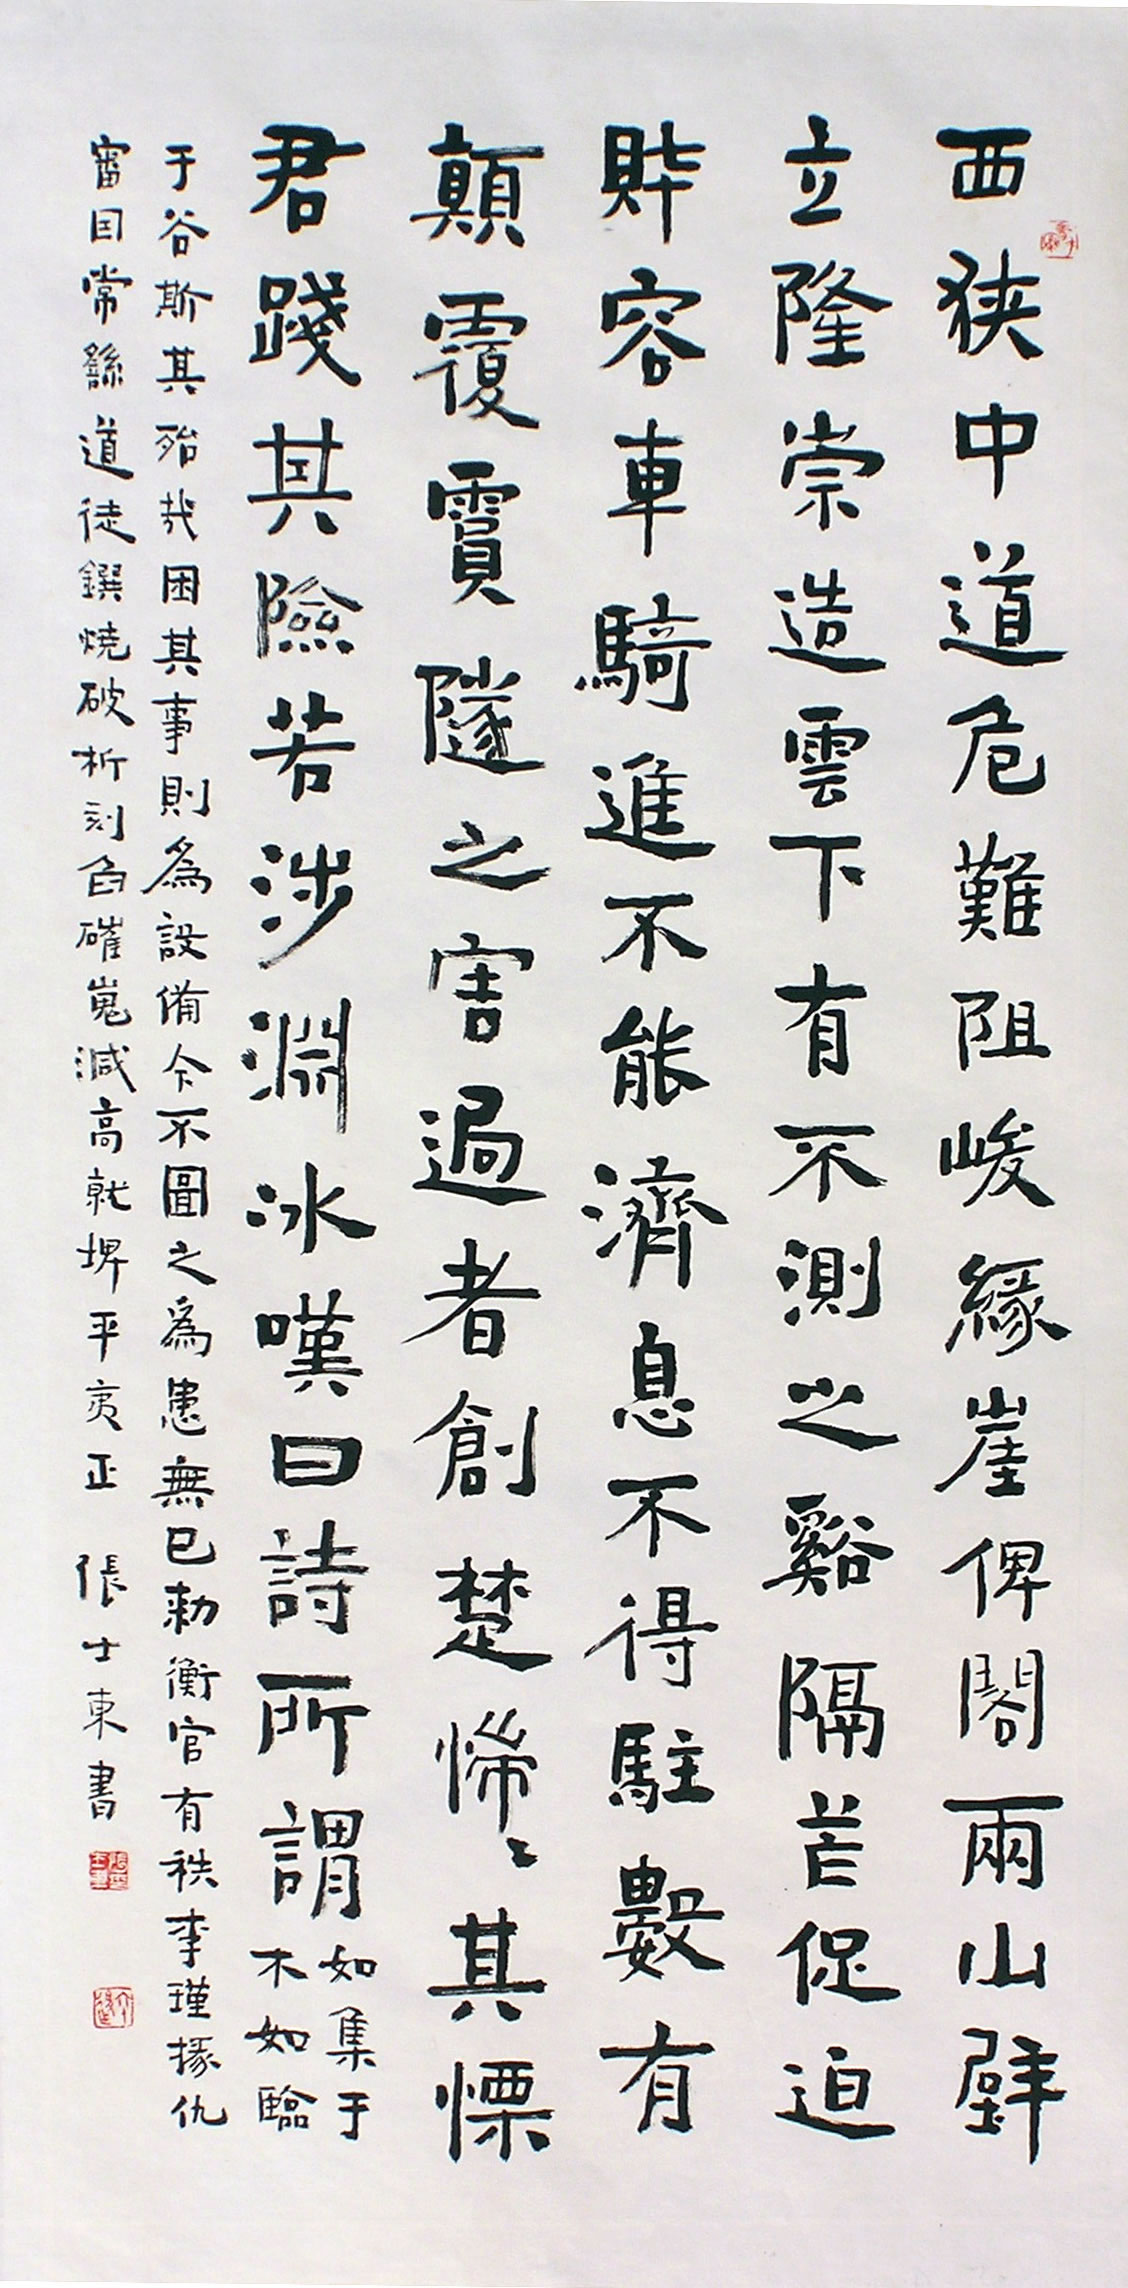 西狹中道危難阻峻緣崖俾閣兩山壁
立隆崇造雲下有不測之谿隔芒促迫
財容車騎進不能濟息不得駐數有
顛覆霣隧之害過者創楚惴〻其慄
君踐其險若涉淵冰嘆曰詩所謂
如集于
木如臨
于谷斯其殆哉困其事則為設俻今不圖之為患無已勅衡官有秩李瑾掾仇
審因常繇道徒鐉燒破析刻臽磪嵬減高就埤平夷正 張士東書